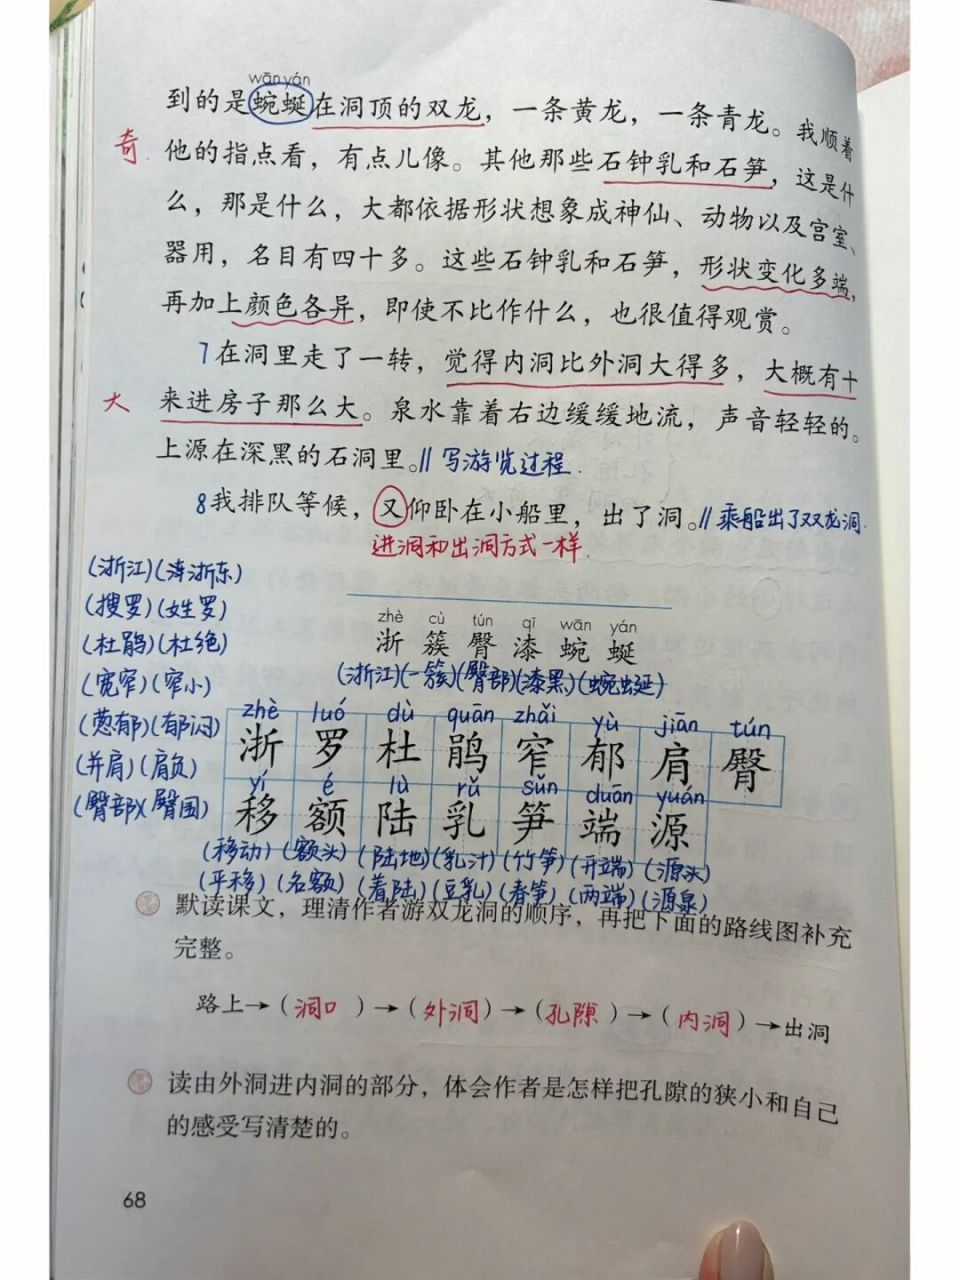 wān yán
到的是蜿蜒在洞顶的双龙，一条黄龙，一条青龙。我顺着
奇
他的指点看，有点儿像。其他那些石钟乳和石笋，这是什
么，那是什么，大都依据形状想象成神仙、动物以及宫室、
器用，名目有四十多。这些石钟乳和石笋，形状变化多端，
再加上颜色各异，即使不比作什么，也很值得观赏。
7在洞里走了一转，觉得内洞比外洞大得多，大概有十
大
来进房子那么大。泉水靠着右边缓缓地流，声音轻轻的。
上源在深黑的石洞里。//写游览过程.
8我排队等候，又仰卧在小船里，出了洞。//乘船出了双龙洞.
进洞和出洞方式一样.
(浙江)(浙东)
(搜罗)(姓罗)
(杜鹃)(杜绝)
(宽窄)(窄小)
(葱郁)(郁闷)
(并肩)(肩负)
(臀部)(臀围)
zhè cù tún qī wān yán
浙 簇 臀 漆 蜿 蜒
(浙江)(一簇)(臀部)(漆黑)(蜿蜒)
zhè luó dù quān zhǎi yù jiān tún
浙 罗 杜 鹃 窄 郁 肩 臀
yí é lù rǔ sǔn duān yuán
移 额 陆 乳 笋 端 源
(移动)(额头)(陆地)(乳汁)(竹笋)(开端)(源头)
(平移)(名额)(着陆)(豆乳)(春笋)(两端)(源泉)
默读课文，理清作者游双龙洞的顺序，再把下面的路线图补充
完整。
路上→(洞口)→(外洞)→(孔隙)→(内洞)→出洞
读由外洞进内洞的部分，体会作者是怎样把孔隙的狭小和自己
的感受写清楚的。
68